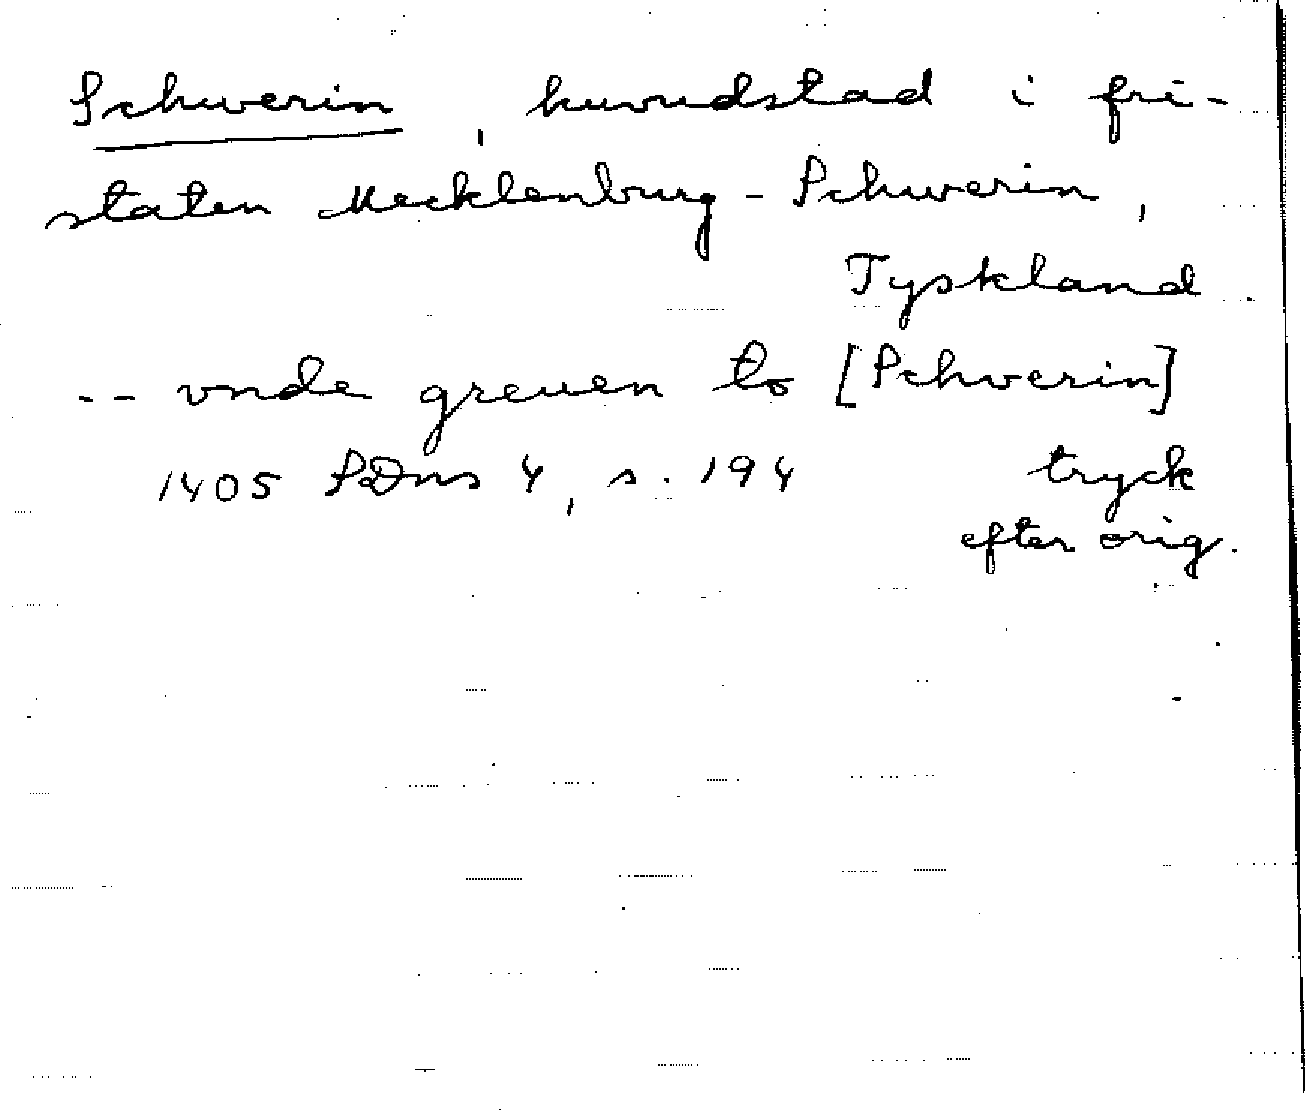 Schwerin, huvudstad i fri-
staten Mecklenburg-Schwerin,
Tyskland.
-- vnde greuen to [Schverin]
1405 SDns 4, s. 194 tryck
efter orig.